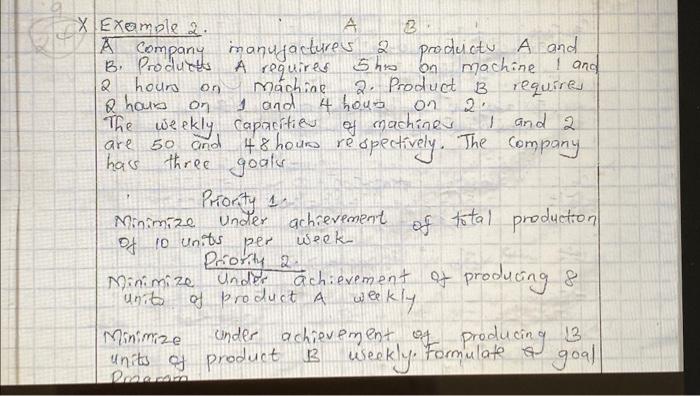 X Example 2. A B.
A Company manufactures 2 products A and
B. Products A requires 5 hrs on machine 1 and
2 hours on machine 2. Product B requires
2 hours on 1 and 4 hours on 2.
The weekly capacities of machines 1 and 2
are 50 and 48 hours respectively. The company
has three goals
Priority 1.
Minimize under achievement of total production
of 10 units per week
Priority 2.
Minimize under achievement of producing 8
units of product A weekly
Minimize under achievement of producing 13
units of product B weekly. Formulate a goal
Program